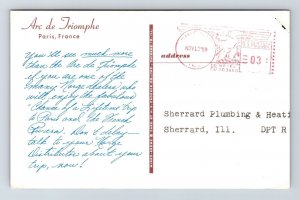 Arc de Triomphe
Paris, France
You'll see much more
than the Arc de Triomphe
if you are one of the
Norge dealers who
will enjoy the fabulous
to Paris and the French
Riviera. Don't delay-
talk to your Norge
Distributor about your
trip, now!
address
NOV 12 '59
03
Sherrard Plumbing & Heati
Sherrard, Ill. DPT R